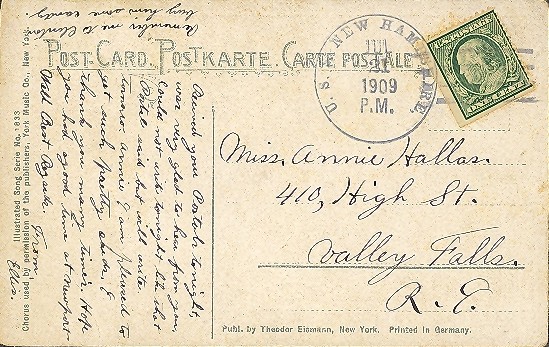 Remember me to Clinton
buy him some candy.
POST-CARD. POSTKARTE. CARTE POSTALE
U.S.S. NEW HAMPSHIRE
JUL
21
1909
P.M.
ONE CENT
Miss. Annie Hallas.
410, High St.
Valley Falls.
R. I.
Recived your Postals tonight,
was very glad to hear from you,
Could not write tonight like that
Postal said but will write
tomorow. Annie I am pleased to
get such pretty cards, I
thank you many times. Hope
you had a good time at Newport
With Best Regards.
From
Ellis.
Illustrated Song Serie No. 1833
Chorus used by permission of the publishers, York Music Co., New York.
Publ. by Theodor Eismann, New York. Printed in Germany.